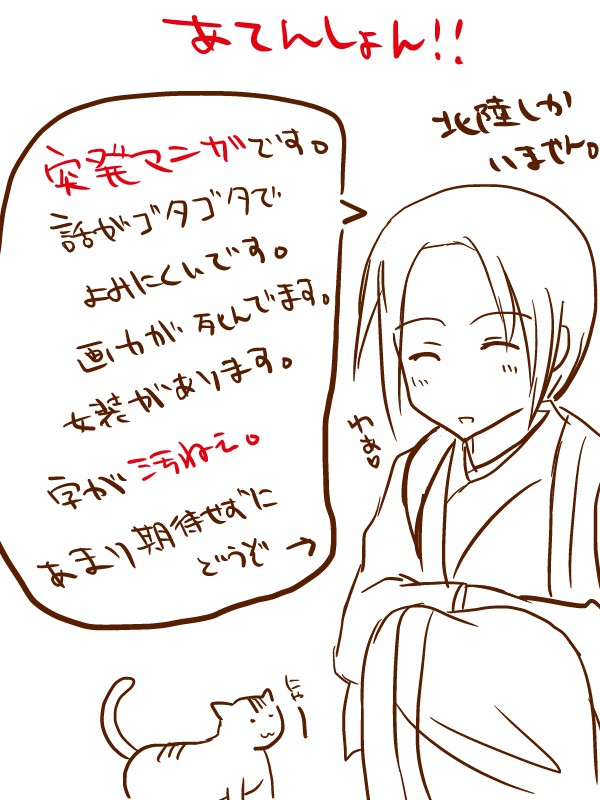 あてんしょん!!
北陸しか
いません。
突発マンガです。
話がゴタゴタで
よみにくいです。
画力が死んでます。
女装があります。
字が汚ねぇ。
あまり期待せずに
どうぞ→
わぁ。
にゃー